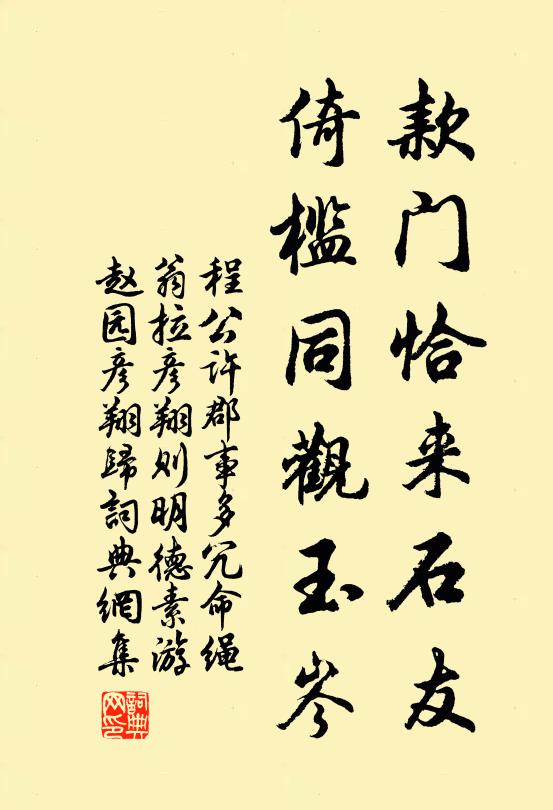 款门恰来石友
倚槛同觀玉岑
程公许郡事多冗命绳
翁拉彦翔则明德素游
赵园彦翔歸詞典網集
詞典
网印